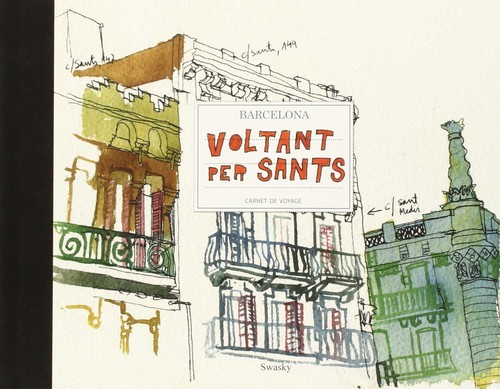 c/sants, 147
c/sants, 149
BARCELONA
VOLTANT
PER SANTS
CARNET DE VOYAGE
← c/ Sant
Medir
Swasky